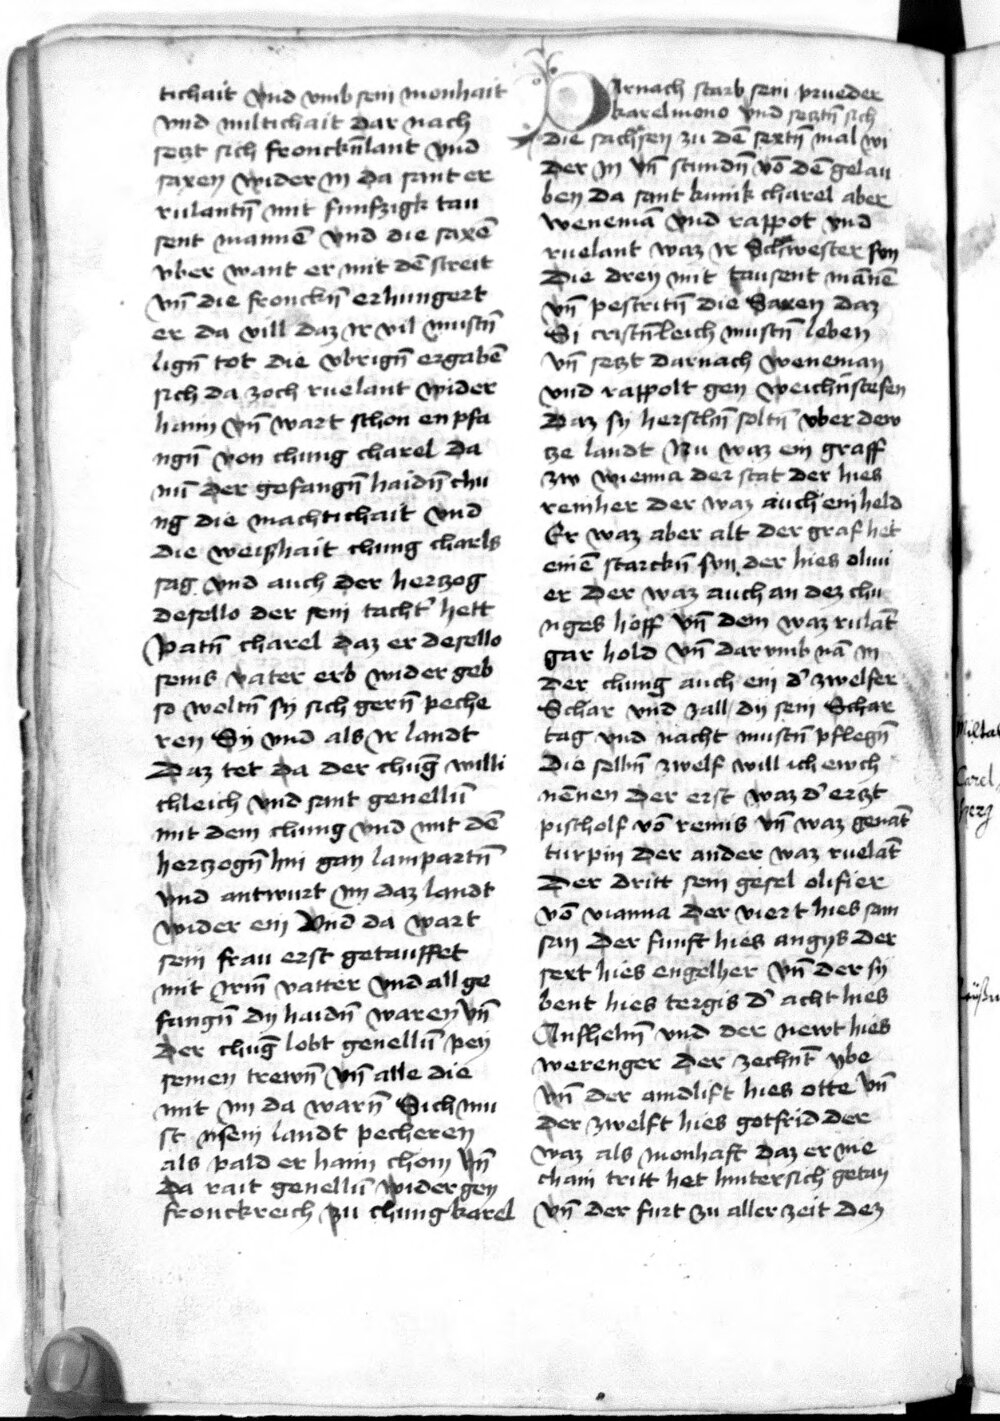 tichait vnd vmb sein monhait
vnd miltichait dar nach
setzt sich fronckn̄lant vnd
saxen wider in da sant er
rulantn̄ mit funfzigk tau
sent mannē vnd die saxē
vber want er mit dē streit
vn̄ die fronckn̄ erhungert
er da vill daz ir vil mustn̄
lign̄ tot die vbrign̄ ergabē
sich da zoch ruelant wider
haim vn̄ wart schon enpfa
ngn̄ von chung charel da
nū der gefangn̄ haidn̄ chu
ng die machtichait vnd
die weishait chung charls
sag vnd auch der hertzog
desello der sein tacht' hett
Patn̄ charel daz er desello
seins vater erb wider geb
so woltn̄ sy sich gern̄ peche
ren Sy vnd als ir landt
Daz tet da der chuḡ willi
chleich vnd sant genellū
mit dem chung vnd mit dē
hertzogn̄ hin gan lampartn̄
vnd antwurt im daz landt
wider ein Vnd da wart
sein frau erst getauffet
mit irm̄ vatter vnd all ge
fangn̄ dy haidn̄ waren vn̄
der chuḡ lobt genellū pey
seinen trewn̄ vn̄ alle die
mit im da warn̄ Sich mu
st vnsein landt pecheren
als pald er haim chom vn̄
Da rait genellū wider gen
fronckreich zu chung karel
Darnach starb sein prueder
karelmono vnd setztn̄ sich
die sachsen zu dē sextn̄ mal wi
der in vn̄ stundn̄ vō dē gelau
ben da sant kunik charel aber
wenemā vnd rappot vnd
ruelant waz ir Schwester sun
Die drey mit tausent mānē
vn̄ pestritn̄ die Saxen daz
Si cristn̄leich mustn̄ leben
vn̄ setzt darnach weneman
vnd rappolt gen weichn̄stefen
Daz sy herschn̄ soltn̄ vber dew
tze landt Nu waz ein graff
zw wienna der stat der hies
reinher der waz auch ein held
Er waz aber alt der graf het
einē starckn̄ sun der hies oliui
er der waz auch an dez chu
niges hoff vn̄ dem waz rulāt
gar hold vn̄ dar vmb nā in
der chung auch ein d' zwelfer
Schar vnd zall dy sein Schar
tag vnd nacht mustn̄ pflegn̄
Die selbn̄ zwelf will ich ewch
nēnen der erst waz d' ertzt
pischolf vō remis vn̄ waz genāt
turpin der ander waz ruelāt
Der dritt sein gesel olifier
vō vianna der viert hies sam
san der funft hies angys der
sext hies engelher vn̄ der sy
bent hies tergis d' acht hies
Anshelm̄ vnd der newt hies
werenger der zechnt̄ ybe
vn̄ der aindlift hies otte vn̄
der zwelft hies gotfrid der
waz als monhaft daz er nie
chain tritt het hintersich getan
vn̄ der furt zu aller zeit dez